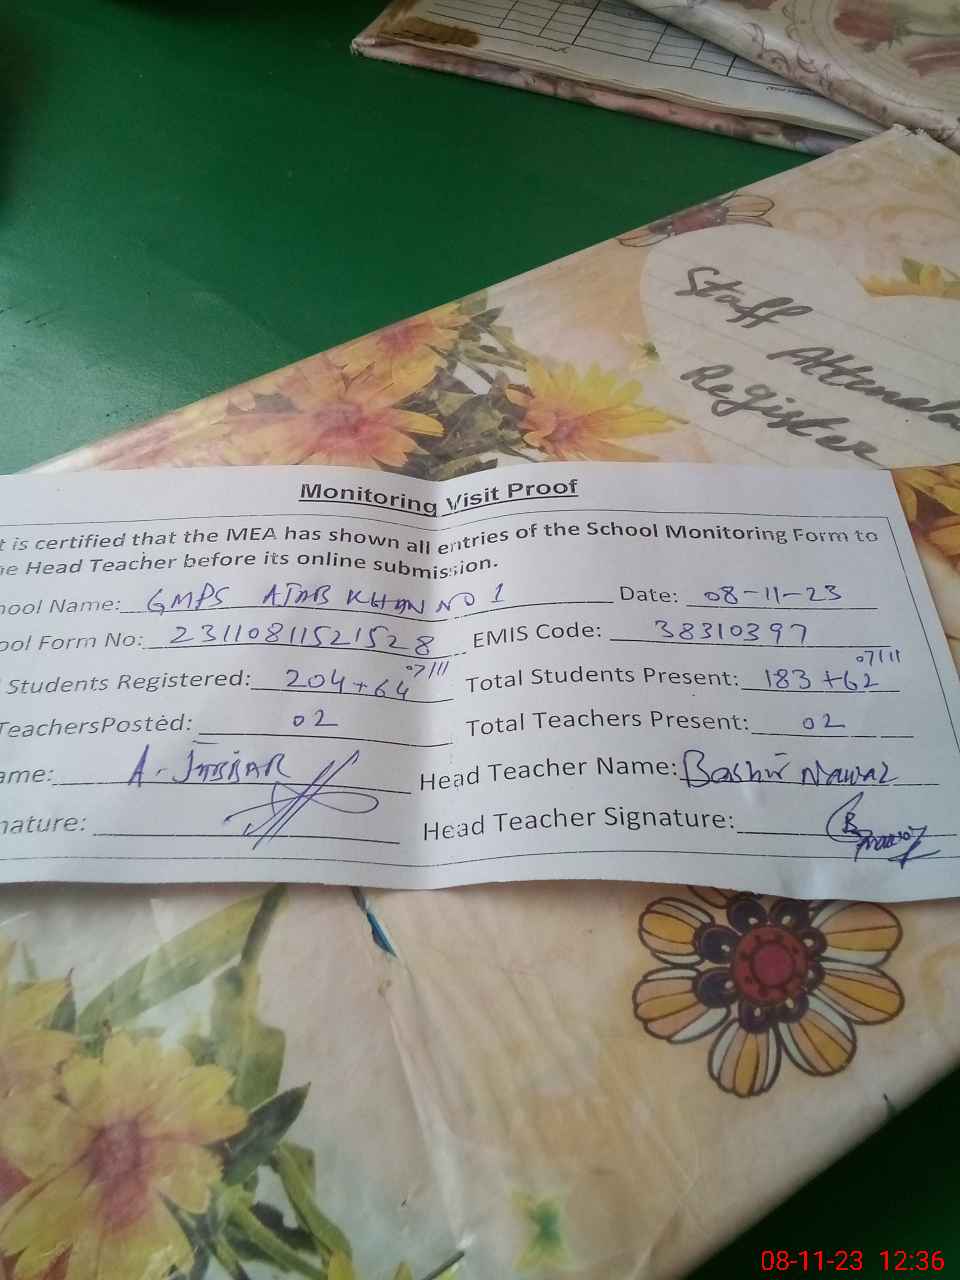 Staff
Register
Monitoring Visit Proof
t is certified that the MEA has shown all entries of the School Monitoring Form to
e Head Teacher before its online submission.
hool Name: GMPS ATAB KHAN NO 1 Date: 08-11-23
ool Form No: 23110811521528 EMIS Code: 38310397
07/11 07/11
Students Registered: 204+64 Total Students Present: 183+62
TeachersPosted: 02 Total Teachers Present: 02
ame: A-JABBAR Head Teacher Name: Bashir Nawaz
nature: Head Teacher Signature:
08-11-23 12:36